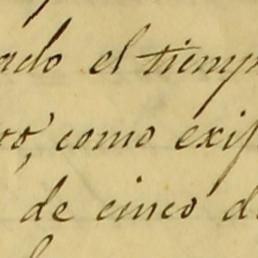 ado el tiemp
como exi
de cinco d